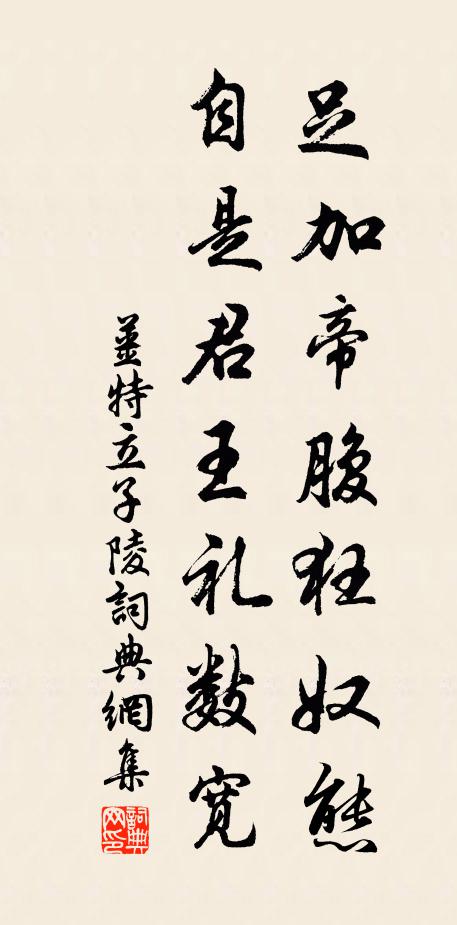 足加帝腹狂奴態
自是君王礼數寬
姜特立子陵詞典網集
詞典網印